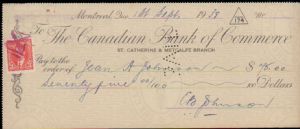 Montreal Que 1st Sept. 1938 No.
174
To The Canadian Bank of Commerce
ST. CATHERINE & METCALFE BRANCH
Pay to the
order of Jean A Johnson $75.00
Seventy five 00/100 Dollars
Johnson